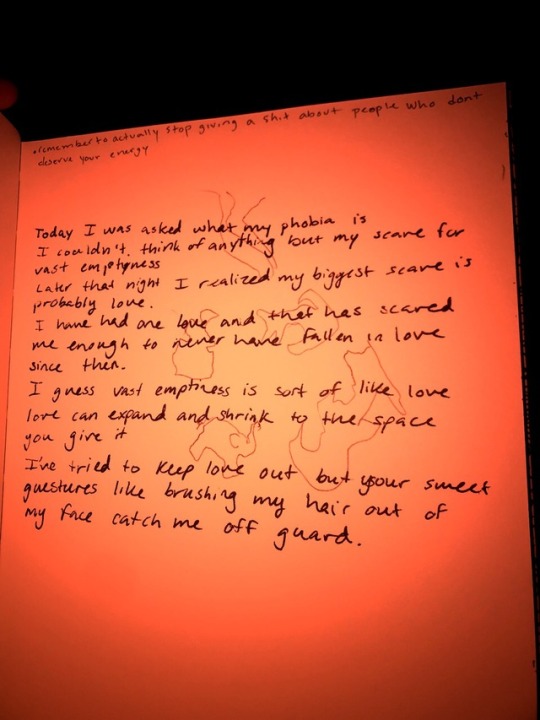 •remember to actually stop giving a shit about people who dont
deserve your energy
Today I was asked what my phobia is
I couldn't think of anything but my scare for
vast emptyness
Later that night I realized my biggest scare is
probably love.
I have had one love and that has scared
me enough to never have fallen in love
since then.
I guess vast emptiness is sort of like love
love can expand and shrink to the space
you give it
I've tried to keep love out but your sweet
guestures like brushing my hair out of
my face catch me off guard.